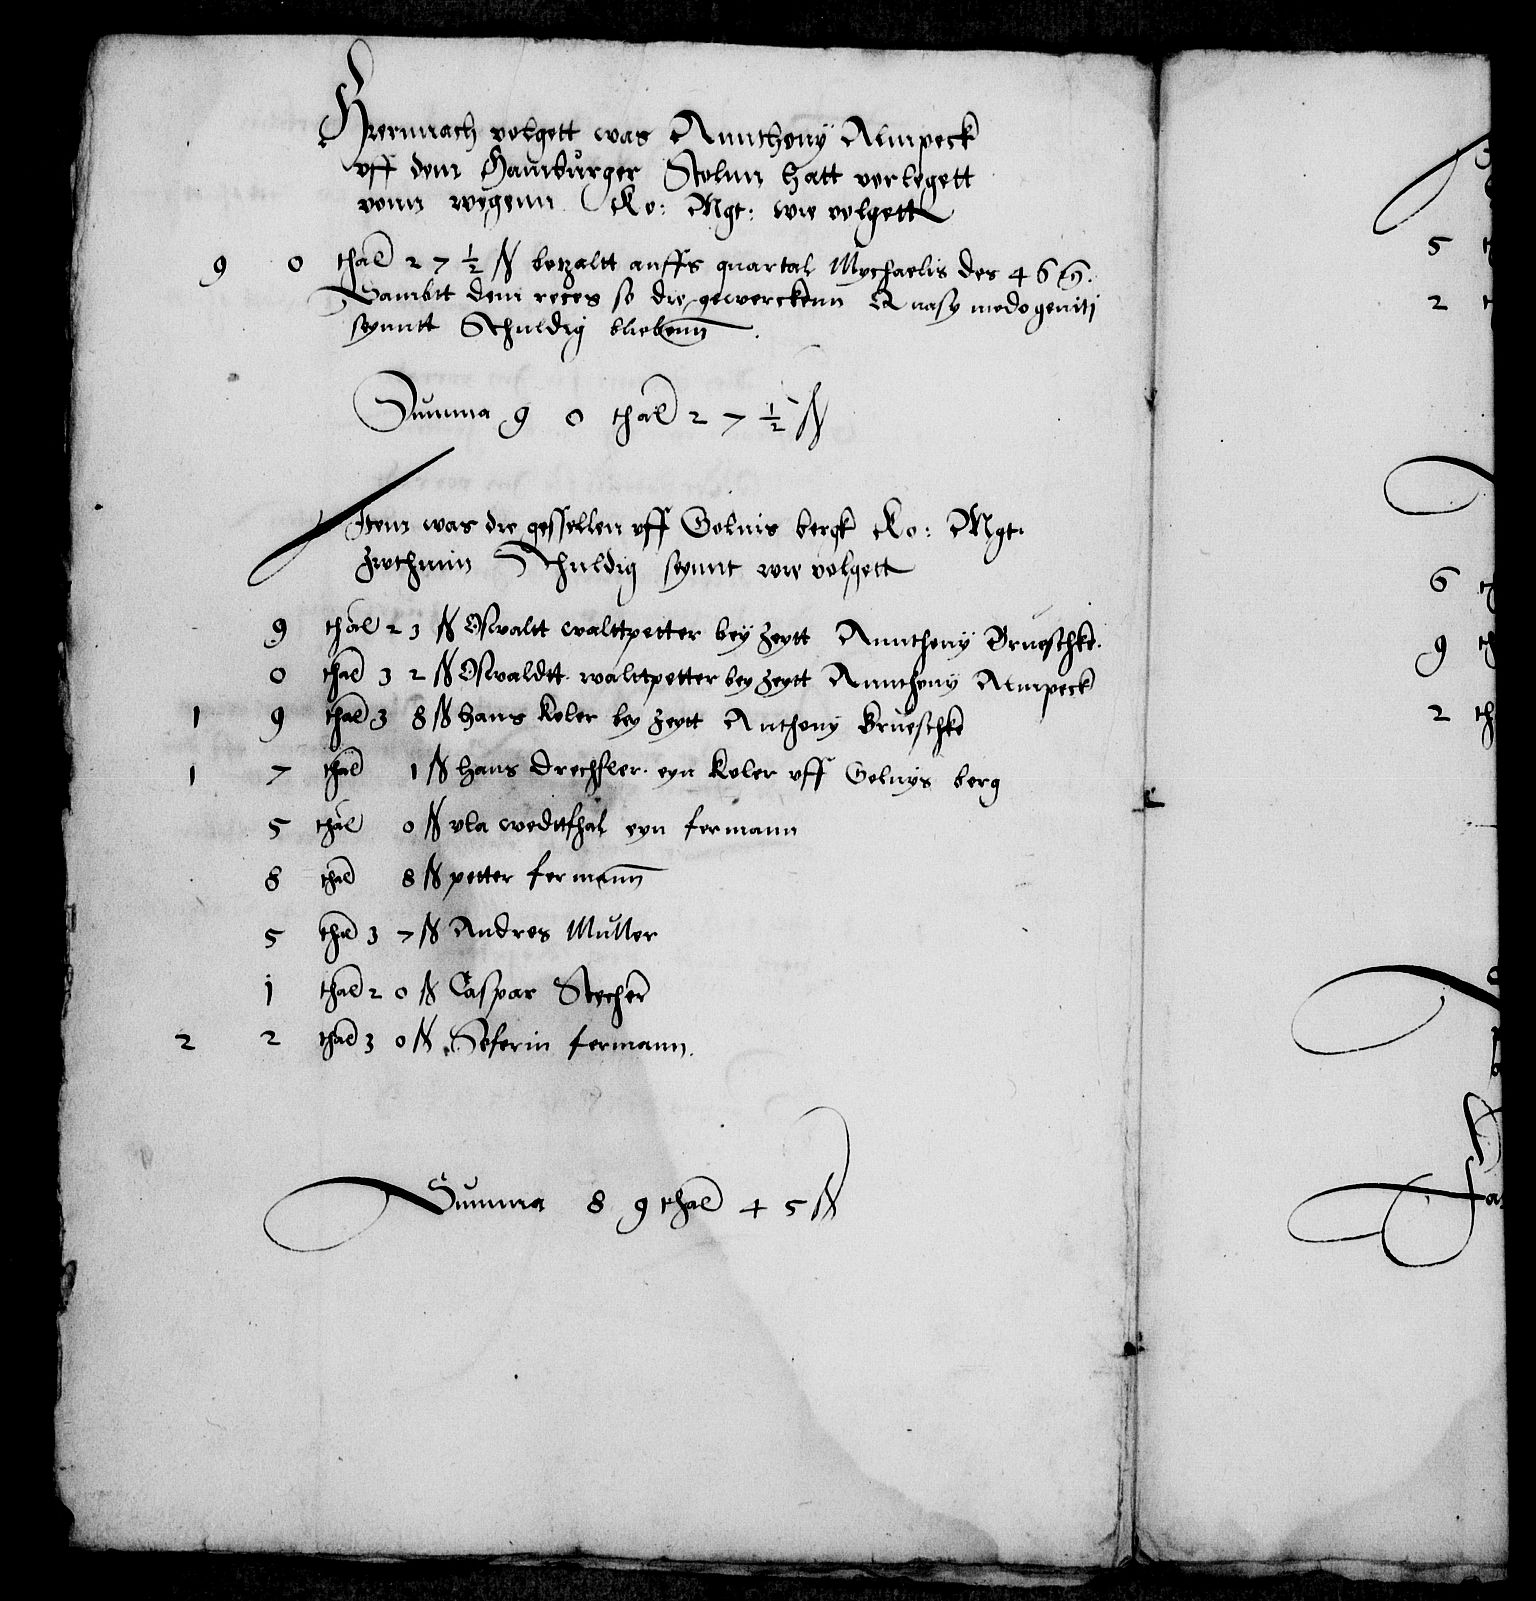 Hyernnach volgett was Annthony Almpeck
vff dem Hamburger Stolnn hatt verlegett
vonn wegenn Ko: Mgt: wie volgett
9 0 thal 2 7 ½ ß betzaltt auffs quartal Mychaelis des 46
Sambtt dem reces so die gewerckenn Quasy modo geniti
seynntt Schuldig bliebenn.
Summa 9 0 thal 2 7 ½ ß
Item was die gessellen vff Golnis bergk Ko: Mgt.
zwthunn Schuldig seynnt wie volgett
9 thal 2 3 ß Osvaltt walttpetter bey zeytt Annthony Brueschke.
0 thal 3 2 ß Osvaldtt walttpetter bey zeytt Annthony Almpeck
1 9 thal 3 8 ß hans koler bey zeytt Anthony Brueschke
1 7 thal 1 ß hans drechsler eyn koler vff Golnys berg
5 thal 0 ß vla wedttfhal eyn fermann
8 thal 8 ß petter fermann
5 thal 3 7 ß Andres Muller
1 thal 2 0 ß Caspar Stecher
2 2 thal 3 0 ß Seferin fermann.
Summa 8 9 thal 4 5 ß
5
2
6
9
2 th